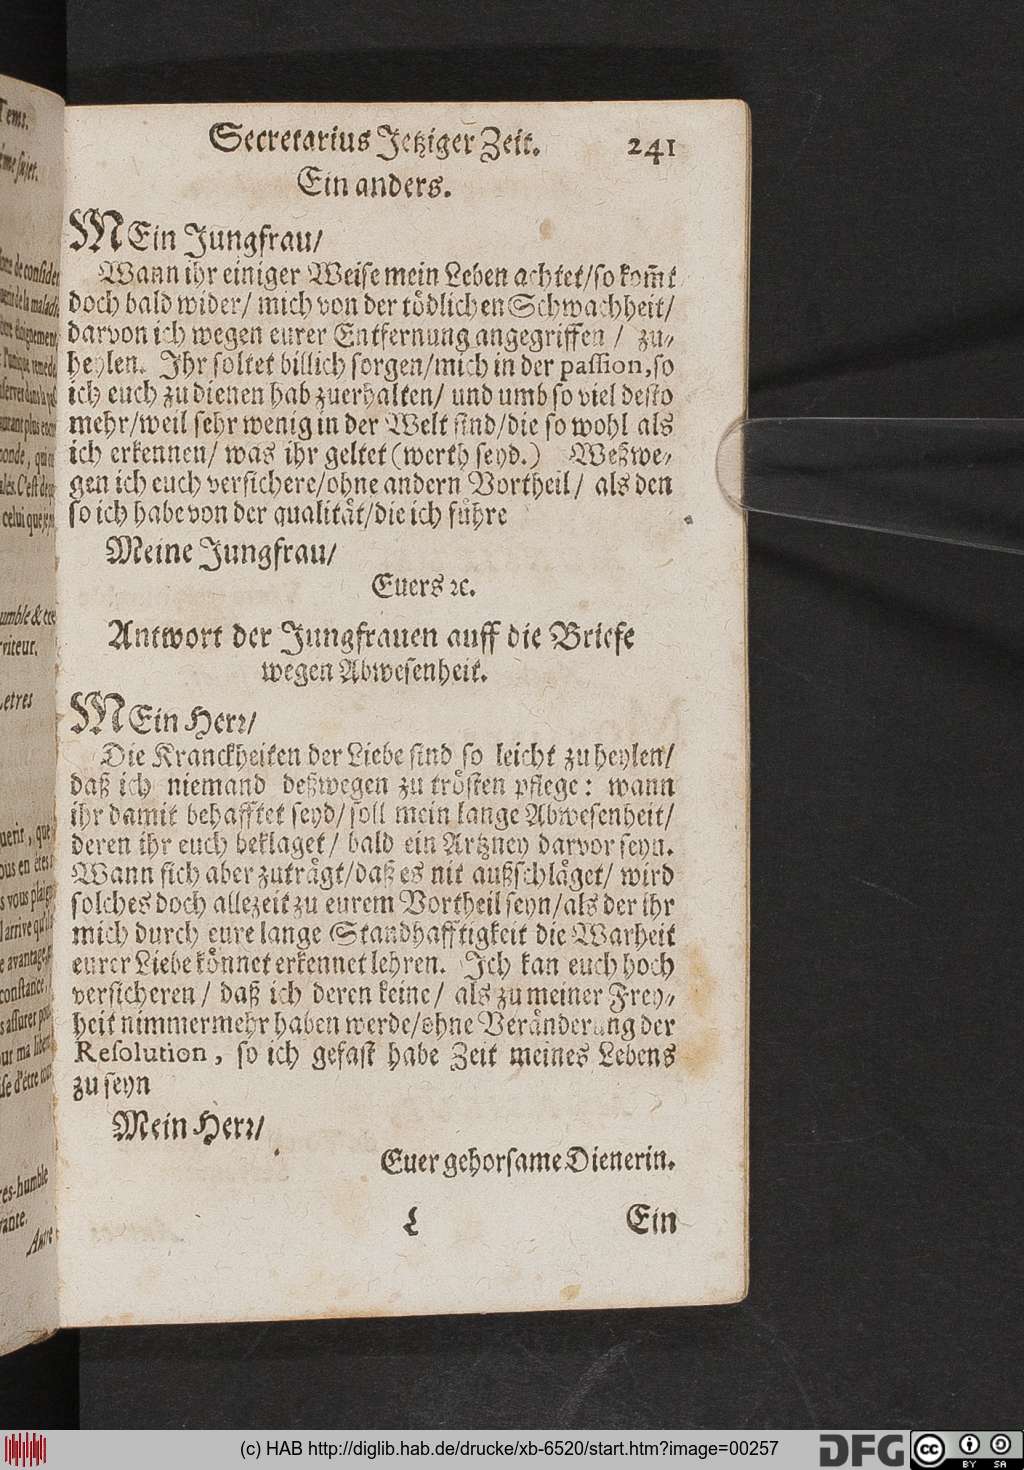 Secretarius Jetziger Zeit. 241
Ein anders.
MEin Jungfrau/
Wann ihr einiger Weise mein Leben achtet/so kom̃t
doch bald wider/ mich von der tödlichen Schwachheit/
darvon ich wegen eurer Entfernung angegriffen / zu-
heylen. Ihr soltet billich sorgen/mich in der passion,so
ich euch zu dienen hab zuerhalten/ und umb so viel desto
mehr/weil sehr wenig in der Welt sind/die so wohl als
ich erkennen/ was ihr geltet (werth seyd.) Weßwe-
gen ich euch versichere/ohne andern Vortheil/ als den
so ich habe von der qualität/die ich führe
Meine Jungfrau/
Euers ꝛc.
Antwort der Jungfrauen auff die Briefe
wegen Abwesenheit.
MEin Herꝛ/
Die Kranckheiten der Liebe sind so leicht zu heylen/
daß ich niemand deßwegen zu trösten pflege: wann
ihr damit behafftet seyd/soll mein lange Abwesenheit/
deren ihr euch beklaget/ bald ein Artzney darvor seyn.
Wann sich aber zuträgt/daß es nit außschläget/ wird
solches doch allezeit zu eurem Vortheil seyn/als der ihr
mich durch eure lange Standhafftigkeit die Warheit
eurer Liebe könnet erkennet lehren. Ich kan euch hoch
versicheren/ daß ich deren keine/ als zu meiner Frey-
heit nimmermehr haben werde/ohne Veränderung der
Resolution, so ich gefast habe Zeit meines Lebens
zu seyn
Mein Herꝛ/
Euer gehorsame Dienerin.
L Ein
(c) HAB http://diglib.hab.de/drucke/xb-6520/start.htm?image=00257
DFG
cc BY SA